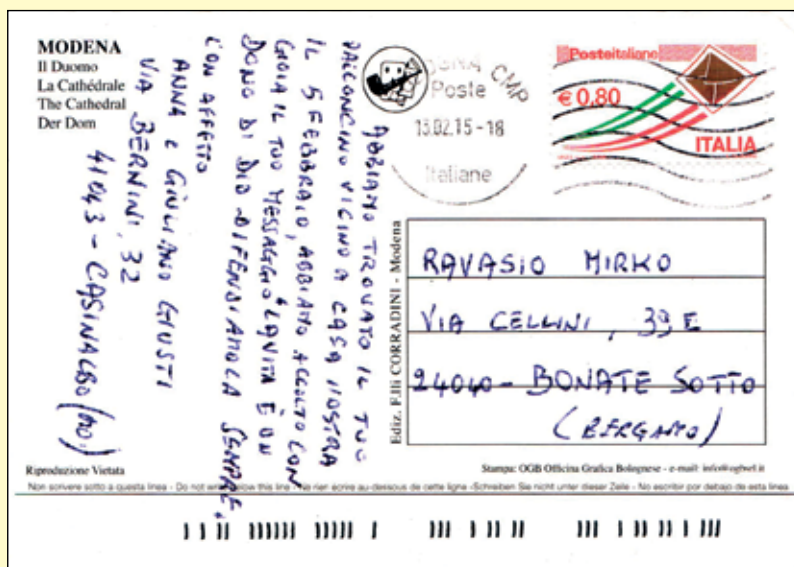 MODENA
Il Duomo
La Cathédrale
The Cathedral
Der Dom
CMP
Poste
13.02.15-18
Italiane
Posteitaliane
€ 0,80
ITALIA
ABBIAMO TROVATO IL TUO
PALLONCINO VICINO A CASA NOSTRA
IL 5 FEBBRAIO, ABBIAMO ACCOLTO CON
GIOIA IL TUO MESSAGGIO "LA VITA È UN
DONO DI DIO DIFENDIAMOLA SEMPRE.
CON AFFETTO
ANNA e GIULIANO GIUSTI
VIA BERNINI, 32
41043 - CASINALBO (MO)
Ediz. F.lli CORRADINI - Modena
RAVASIO MIRKO
VIA CELLINI, 39 E
24040 - BONATE SOTTO
(BERGAMO)
Riproduzione Vietata
Stampa: OGB Officina Grafica Bolognese - e-mail: info@ogbsrl.it
Non scrivere sotto a questa linea - Do not write below this line - Ne rien écrire au-dessous de cette ligne - Schreiben Sie nicht unter dieser Zeile - No escribir por debajo de esta linea